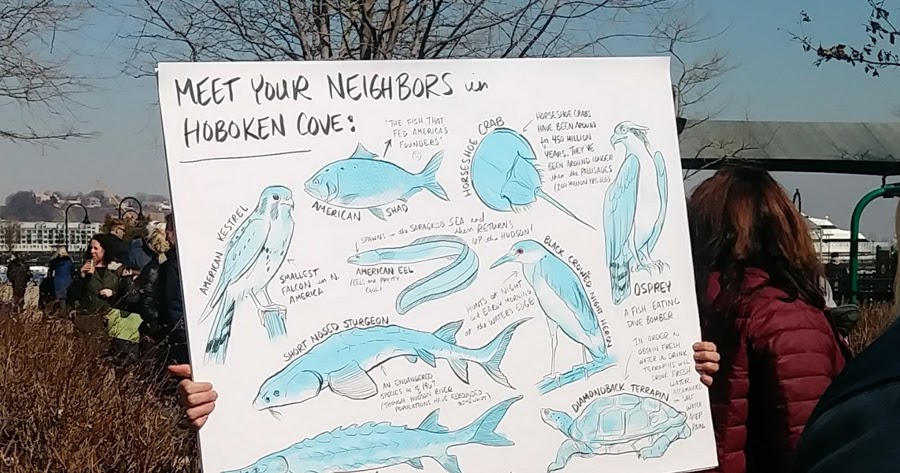 MEET YOUR NEIGHBORS in
HOBOKEN COVE:
"THE FISH THAT
FED AMERICA'S
FOUNDERS"
AMERICAN SHAD
HORSESHOE CRAB
HORSESHOE CRABS
HAVE BEEN AROUND
for 450 MILLION
YEARS. THEY'VE
BEEN AROUND LONGER
than the PALISADES
(200 MILLION YRS OLD)
AMERICAN KESTREL
SMALLEST
FALCON in N.
AMERICA
SPAWNS in the SARAGASSO SEA and
then RETURNS
UP the HUDSON!
AMERICAN EEL
(EELS are PRETTY
COOL)
BLACK CROWNED NIGHT HERON
HUNTS at NIGHT
and EARLY MORNING
at the WATER'S EDGE
OSPREY
A FISH EATING
DIVE BOMBER
SHORT NOSED STURGEON
AN ENDANGERED
SPECIES as of 1967
THOUGH HUDSON RIVER
POPULATIONS HAVE REBOUNDED
SOMEWHAT
DIAMONDBACK TERRAPIN
IN ORDER to
OBTAIN FRESH
WATER to DRINK
TERRAPINS WILL
DRINK FRESH
WATER
on SALT
WATER